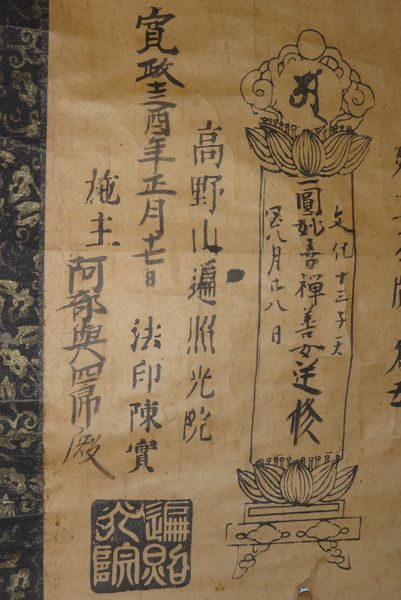 文化十三子天
一圓妙音禪善女逆修
八月廿八日
高野山遍照光院
寛政十三酉年正月十七日 法印陳實
施主 阿部與四郎殿
遍照光院